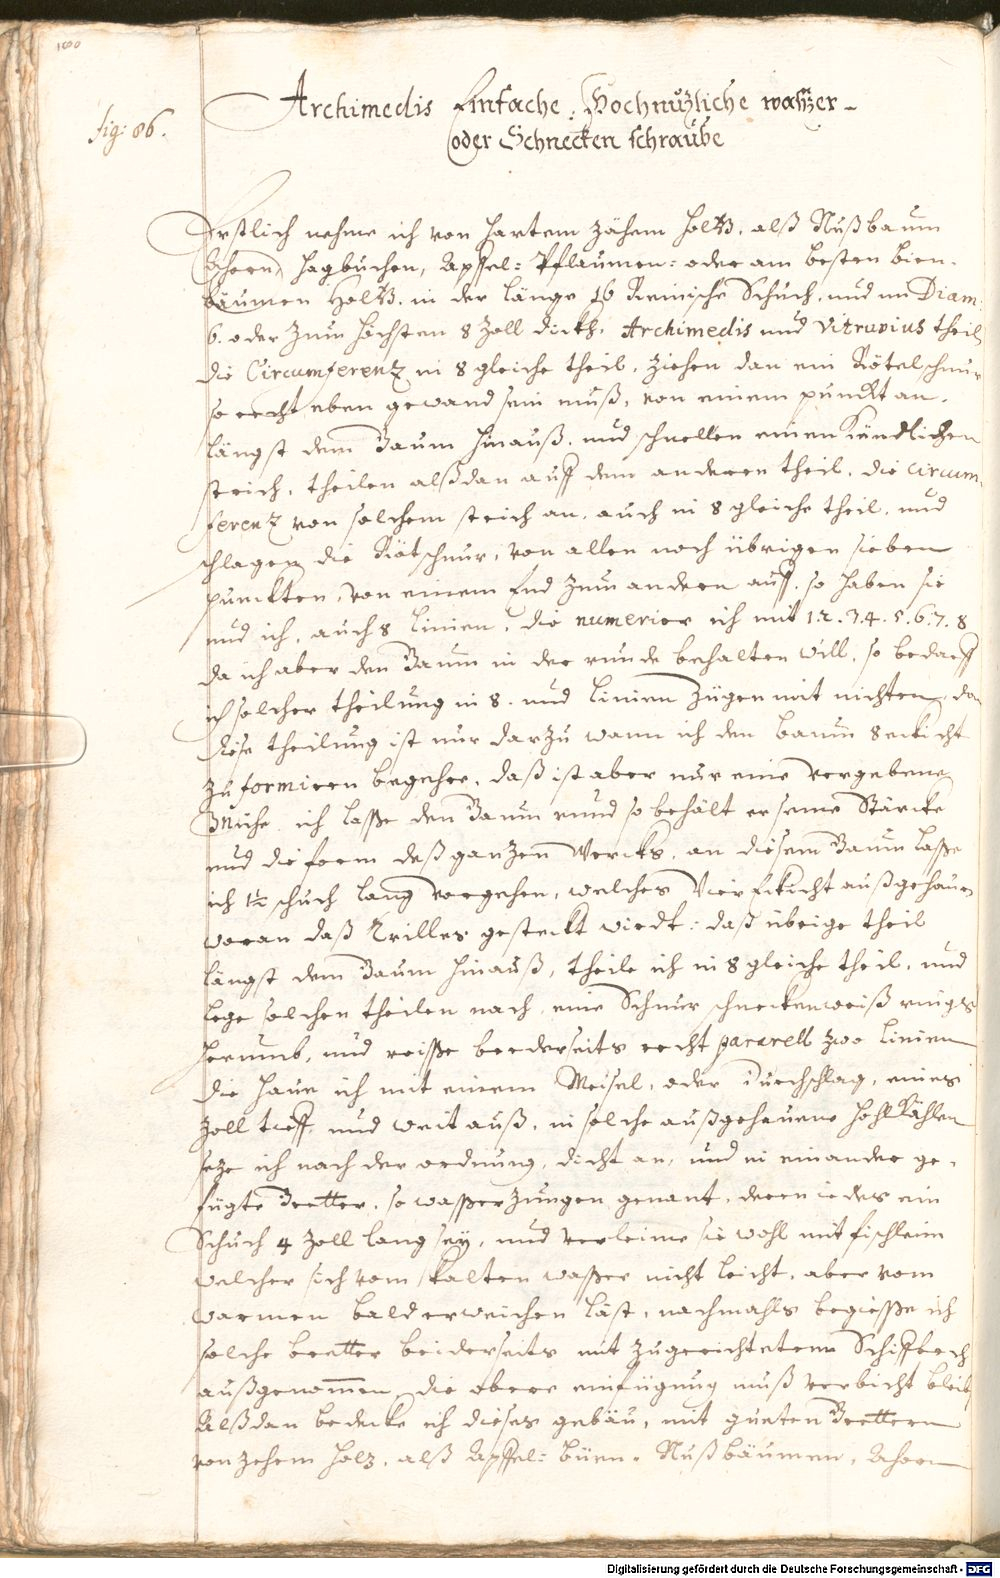 160
fig: 86.
Archimedis Einfache, Hochnuzliche waßer-
oder Schnecken schraube
Erstlich nehme ich von hartem zähem Holtz, alß Nußbaum
Ahorn, Hagbuchen, Apffel= Pflaumen= oder am besten bien-
bäumen Holtz, in der länge 16 Reinische Schuch, und im Diam:
6. oder zum höchsten 8 Zoll dickh. Archimedis und Vitruvius theil
die Circumferentz in 8 gleiche theil, ziehen dan ein Rötelschnur
so recht eben gewand sein muß, von einem punckt an,
längst dem Baum hinauß, und schnellen einen kändtlichen
strich, theilen alßdan auff dem anderen theil, die circum
ferentz von solchem strich an, auch in 8 gleiche theil, und
schlagen die Rötschnur, von allen noch übrigen sieben
punckten, von einem End zum andern auß, so haben sie
und ich, auch 8 Linien, die numerier ich mit 1.2.3.4.5.6.7.8
da ich aber den Baum in der runde behalten will, so bedarff
ich solcher theilung in 8. und linien zügen mit nichten, dan
diese theilung ist nur darzu wann ich den baum 8eckicht
zu formiren begehre, daß ist aber nur eine vergebene
Mühe, ich lasse den Baum rund so behält er seine Stärcke
und die form deß ganzen Wercks, an diesem Baum lasse
ich 1½ schuch lang vorgehen, welches Vier Eckicht außgehauen
woran daß Trilles gesteckt wirdt: daß übrige theil
längst dem Baum hinauß, theile ich in 8 gleiche theil, und
lege solchen theilen nach, eine Schnur schneckenweiß rings
herumb, und reisse beederseits recht pararell zwo linien
die haue ich mit einem Meisel, oder Durchschlag, eines
Zoll tieff und weit auß, in solche außgehauene hohlkählen
seze ich nach der ordnung, dicht an, und in einander ge-
fügte Bretter, so wasserzungen genant, deren iedes ein
Schuch 4 Zoll lang sey, und verleime sie wohl mit fischleim
welcher sich vom kalten wasser nicht leicht, aber vom
warmen bald erweichen läst, nachmahls begiesse ich
solche bretter beiderseits mit zugerichtetem Schiffbech
außgenommen, die obere einfügung muß verbicht bleib
Alßdan bedecke ich dieses gebäu, mit gueten Brettern
von zehem holz, alß Apffel= büen- Nußbäumen, Ahorn
Digitalisierung gefördert durch die Deutsche Forschungsgemeinschaft - DFG